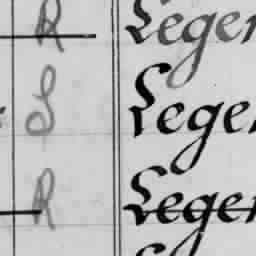 R Leger
S Leger
R Leger